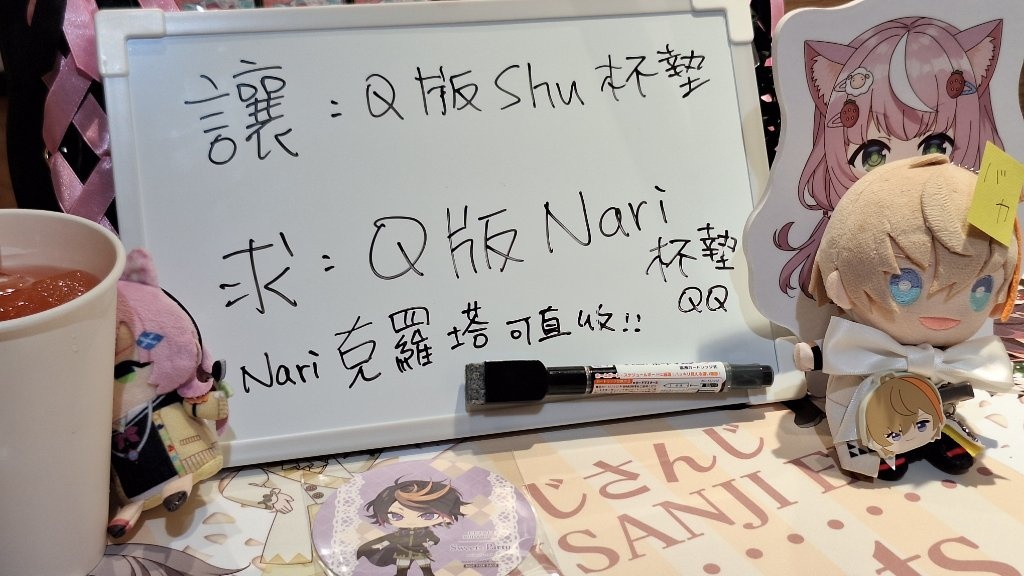 讓：Q版Shu杯墊
求：Q版Nari
杯墊
QQ
Nari克羅塔可直收!!
バカ
じさんじ
SANJI
Sweets Party